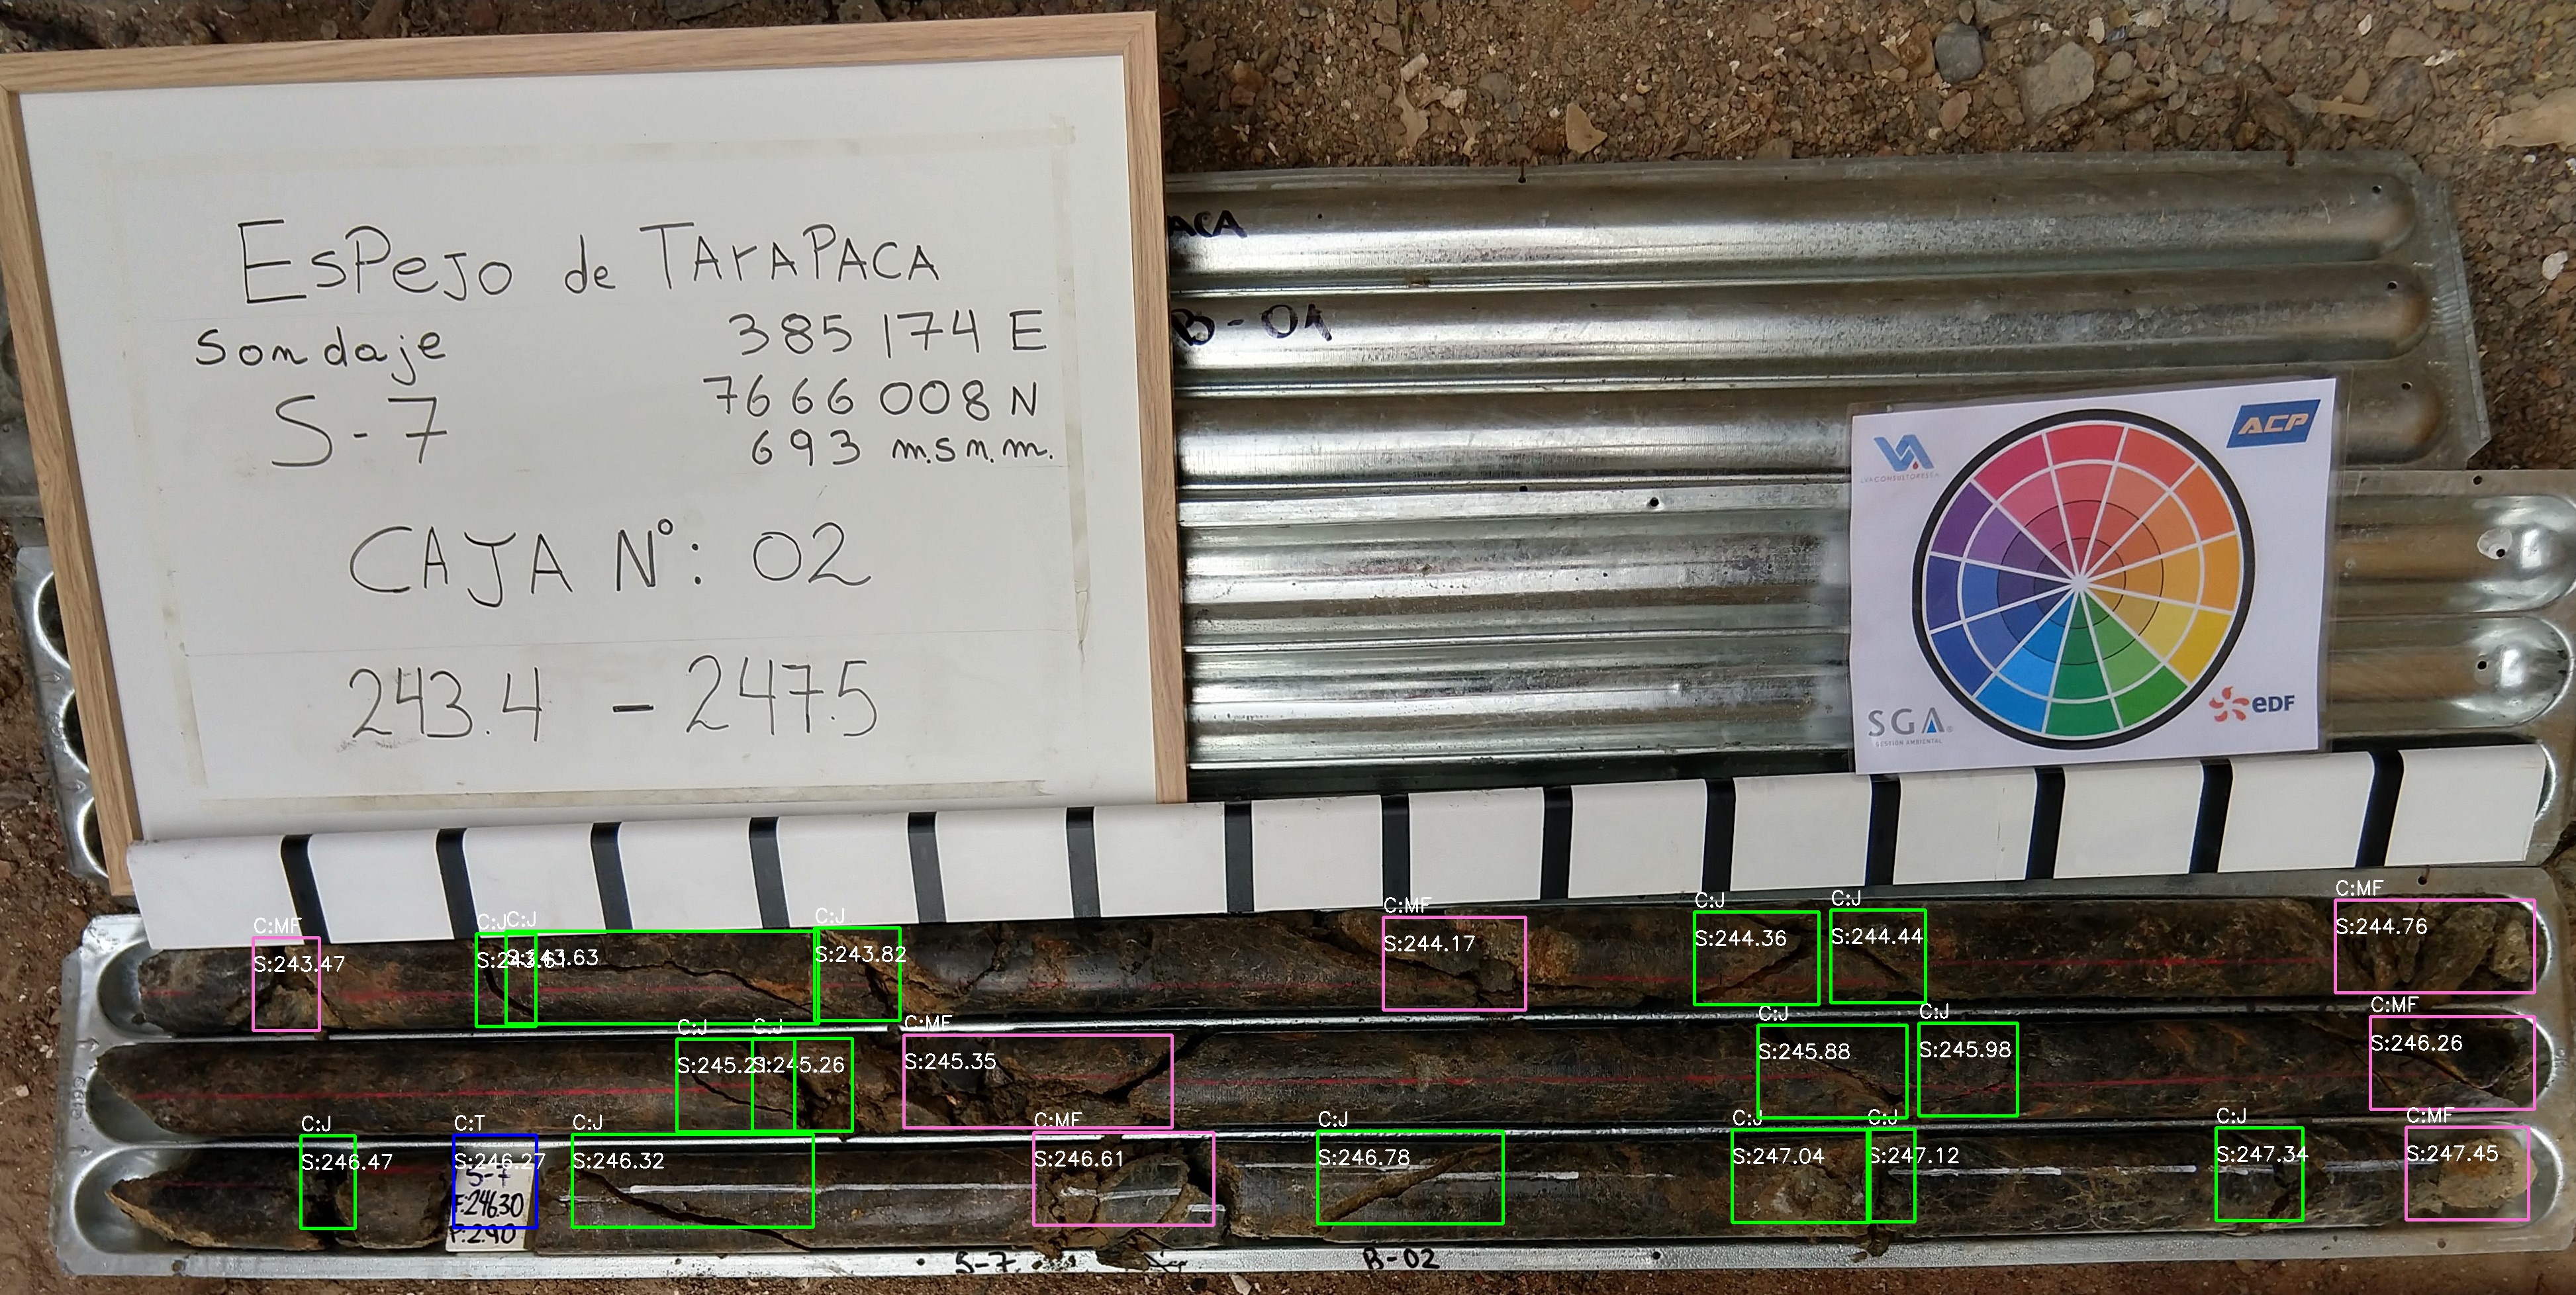 EsPeJo de TArAPACA
Sondaje
385174 E
S-7
7666 008 N
693 m.s.n.m.
CAJA N°: 02
243.4 - 247.5
ACA
B-01
ACP
VA
SGA
GESTIÓN AMBIENTAL
eDF
C:MF
S:243.47
C:J
C:J
S:243.63
C:J
S:243.82
C:MF
S:244.17
C:J
S:244.36
C:J
S:244.44
C:MF
S:244.76
C:J
C:J
S:245.26
C:MF
S:245.35
C:J
S:245.88
C:J
S:245.98
C:MF
S:246.26
C:J
S:246.47
C:T
S:246.27
C:J
S:246.32
C:MF
S:246.61
C:J
S:246.78
C:J
S:247.04
C:J
S:247.12
C:J
S:247.34
C:MF
S:247.45
S-7
F:246.30
P:2.90
S-7
B-02